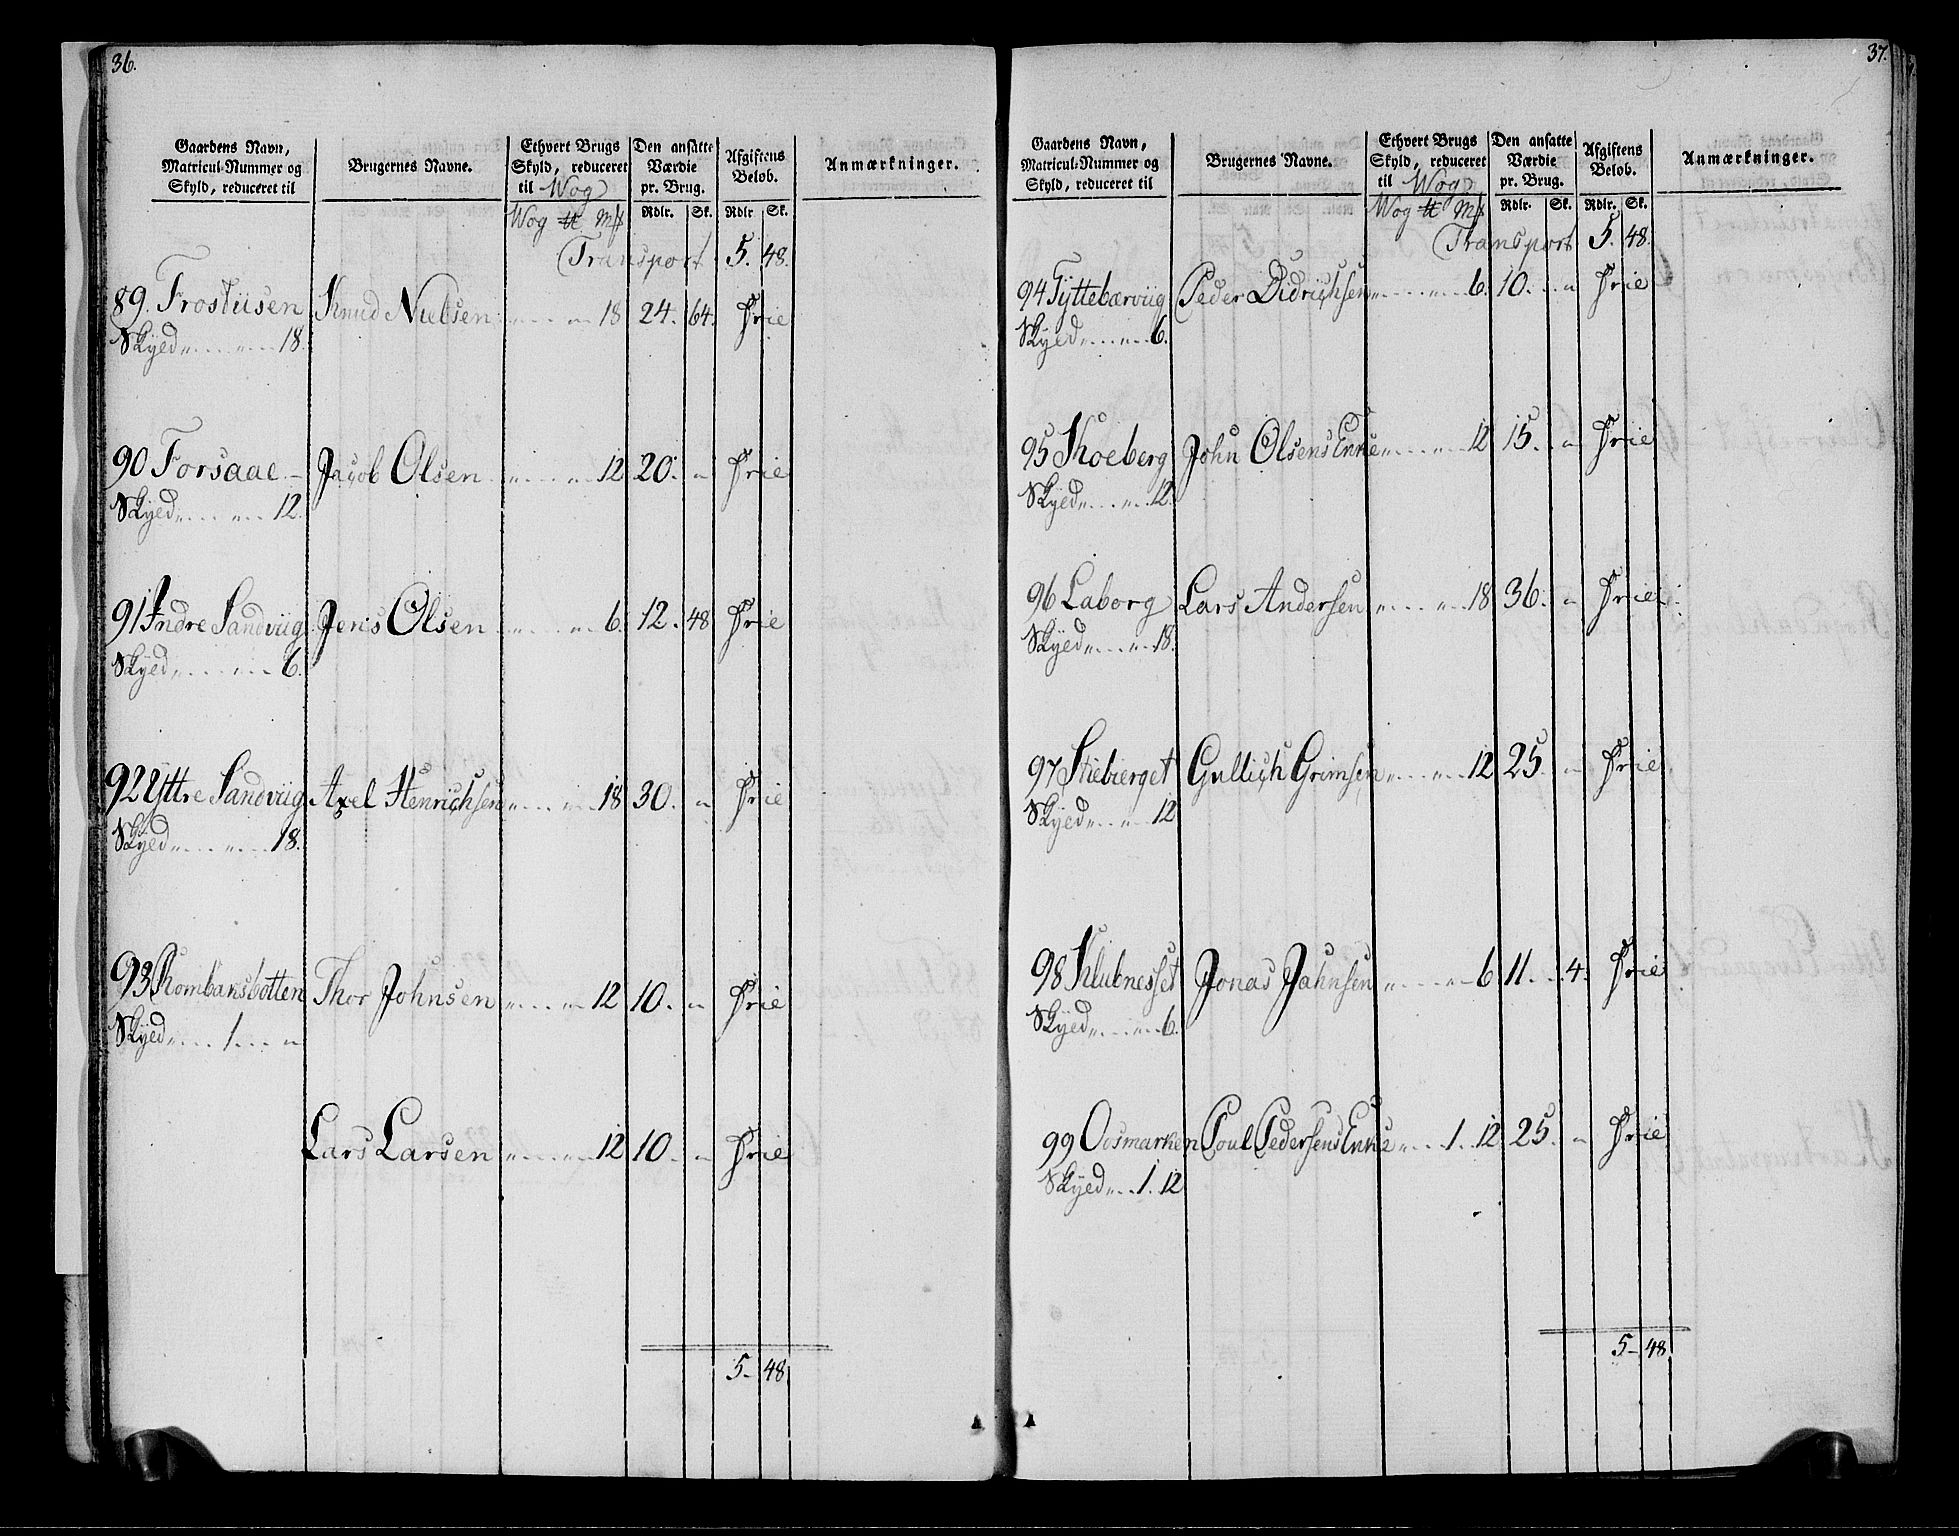 36.
Gaardens Navn, Matricul-Nummer og Skyld, reduceret til
Brugernes Navne.
Ethvert Brugs Skyld, reduceret til Wog
Den ansatte Værdie pr. Brug.
Afgiftens Beløb.
Anmærkninger.
Wog ℔ Mk Rdlr. Sk. Rdlr Sk.
Transport 5. 48.
89. Frostiisen Knud Nielsen 18 24. 64. Frie
Skyed 18.
90 Forsaae Jacob Olsen 12 20. " Frie
Skyed 12.
91 Indre Sandviig Jens Olsen 6. 12. 48 Frie
Skyed 6.
92 Yttre Sandviig Axel Henrichsen 18 30. " Frie
Skyed 18.
93 Rombansbotten Thor Johnsen 12 10. " Frie
Skyed 1. "
Lars Larsen 12 10. " Frie
5- 48
37.
Gaardens Navn, Matricul-Nummer og Skyld, reduceret til
Brugernes Navne.
Ethvert Brugs Skyld, reduceret til Wog
Den ansatte Værdie pr. Brug.
Afgiftens Beløb.
Anmærkninger.
Wog ℔ Mk Rdlr. Sk. Rdlr. Sk.
Transport 5. 48.
94 Tyttebærviig Peder Didrichsen 6. 10. " Frie
Skyed 6.
95 Skoeberg John Olsens Enke 12 15. " Frie
Skyed 12.
96 Laborg Lars Andersen 18 36. " Frie
Skyed 18.
97 Stiebierget Gullich Grimsen 12 25. " Frie
Skyed 12
98 Klubnesset Jonas Jahnsen 6 11. 4. Frie
Skyed 6.
99 Oosmarken Poul Pedersens Enke 1. 12 25. " Frie
Skyed 1. 12
5- 48